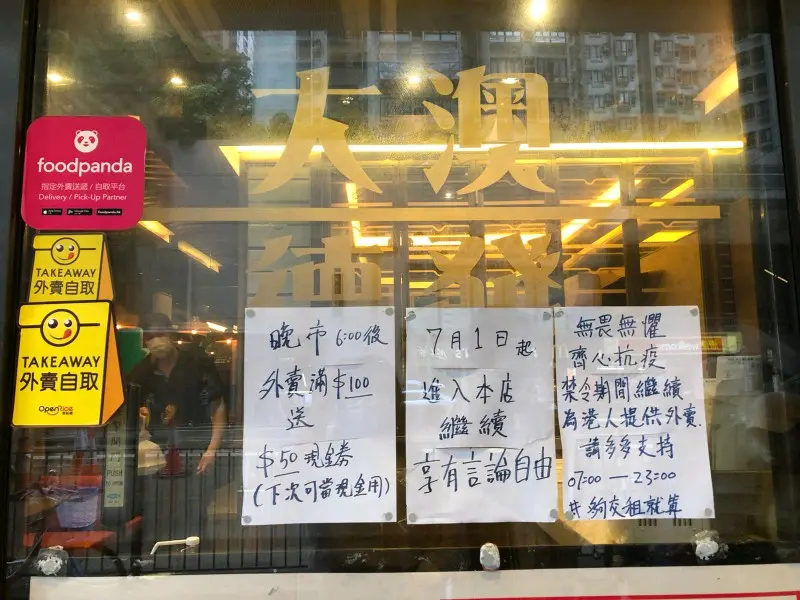 大澳
foodpanda
指定外賣送遞 / 自取平台
Delivery / Pick-Up Partner
TAKEAWAY
外賣自取
TAKEAWAY
外賣自取
OpenRice
晚市 6:00後
外賣滿$100
送
$50 現金券
(下次可當現金用)
7月1日起
進入本店
繼續
享有言論自由
無畏無懼
齊心抗疫
禁令期間繼續
為港人提供外賣.
請多多支持
07:00 — 23:00
#夠交租就算